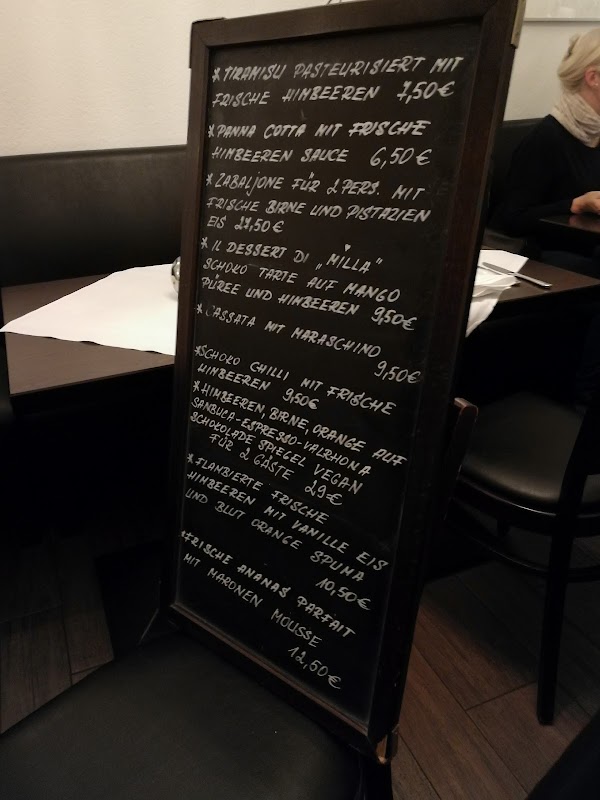 * TIRAMISU PASTEURISIERT MIT
FRISCHE HIMBEEREN 7,50€
* PANNA COTTA MIT FRISCHE
HIMBEEREN SAUCE 6,50€
* ZABALJONE FÜR 2 PERS. MIT
FRISCHE BIRNE UND PISTAZIEN
EIS 27,50€
* IL DESSERT DI „MILLA"
SCHOKO TARTE AUF MANGO
PÜREE UND HIMBEEREN 9,50€
* CASSATA MIT MARASCHINO
9,50€
* SCHOKO CHILLI MIT FRISCHE
HIMBEEREN 9,50€
* HIMBEEREN, BIRNE, ORANGE AUF
SANBUCA-ESPRESSO-VALRHONA
SCHOKOLADE SPIEGEL VEGAN
FÜR 2 GÄSTE 29€
* FLANBIERTE FRISCHE
HIMBEEREN MIT VANILLE EIS
UND BLUT ORANGE SPUMA
10,50€
* FRISCHE ANANAS PARFAIT
MIT MARONEN MOUSSE
12,50€